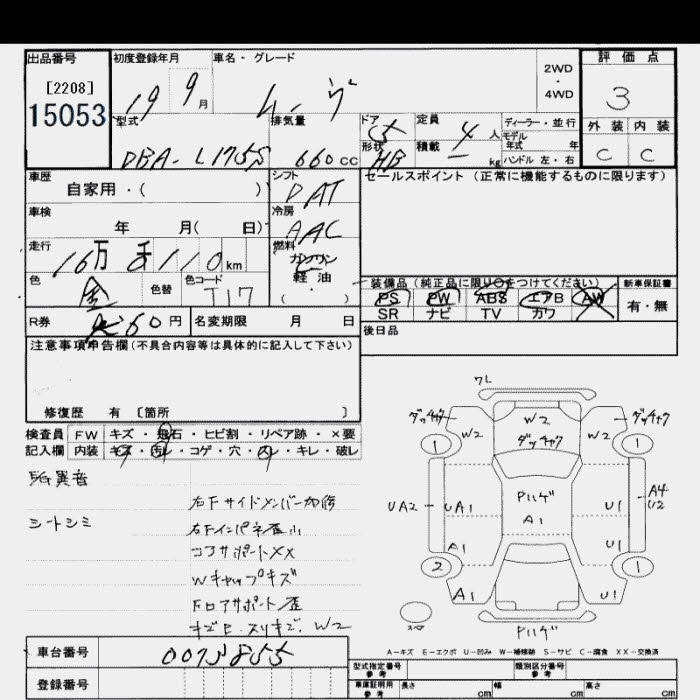 出品番号 初度登録年月 車名・グレード 評価点
[2208] 2WD・4WD
15053 19 9月 ムーヴ 3
型式 排気量 ドア形状 定員 積載 ディーラー・並行 外装 内装
モデル年式 年
DBA-L175S 660cc 5 HB 4人 kg ハンドル 左・右 C C
車歴 シフト セールスポイント(正常に機能するものに限ります)
自家用・( ) DAT
車検 冷房
年 月( 日) AAC
走行 燃料
16万 110km ガソリン
軽油
( )
色 色替 色コード 装備品(純正品に限り○をつけてください) 新車保証書
金 T17 PS PW ABS エアB AW 有・無
SR ナビ TV カワ
R券 60円 名変期限 月 日 後日品
注意事項申告欄(不具合内容等は具体的に記入して下さい)
修復歴 有 〔箇所 〕
検査員 FW キズ・飛石・ヒビ割・リペア跡・×要
記入欄 内装 キズ・汚レ・コゲ・穴・スレ・キレ・破レ
異音
シートシミ
右Fサイドメンバー
右Fインパネ歪小
コアサポートXX
Wキャップキズ
Fロアサポート歪
W2
7L
W2 W2 W2
1 1
UA2 UA1 Pハゲ A1 U1 A4 U2
A1 U1
2 1
A1 U1
スペア Pハゲ
A-キズ E-エクボ U-凹み W-補修跡 S-サビ C-腐食 XX-交換済
車台番号 0073855
登録番号
型式指定番号 参考 類別区分番号 参考
車庫証明用 参考 長さ cm 幅 cm 高さ cm